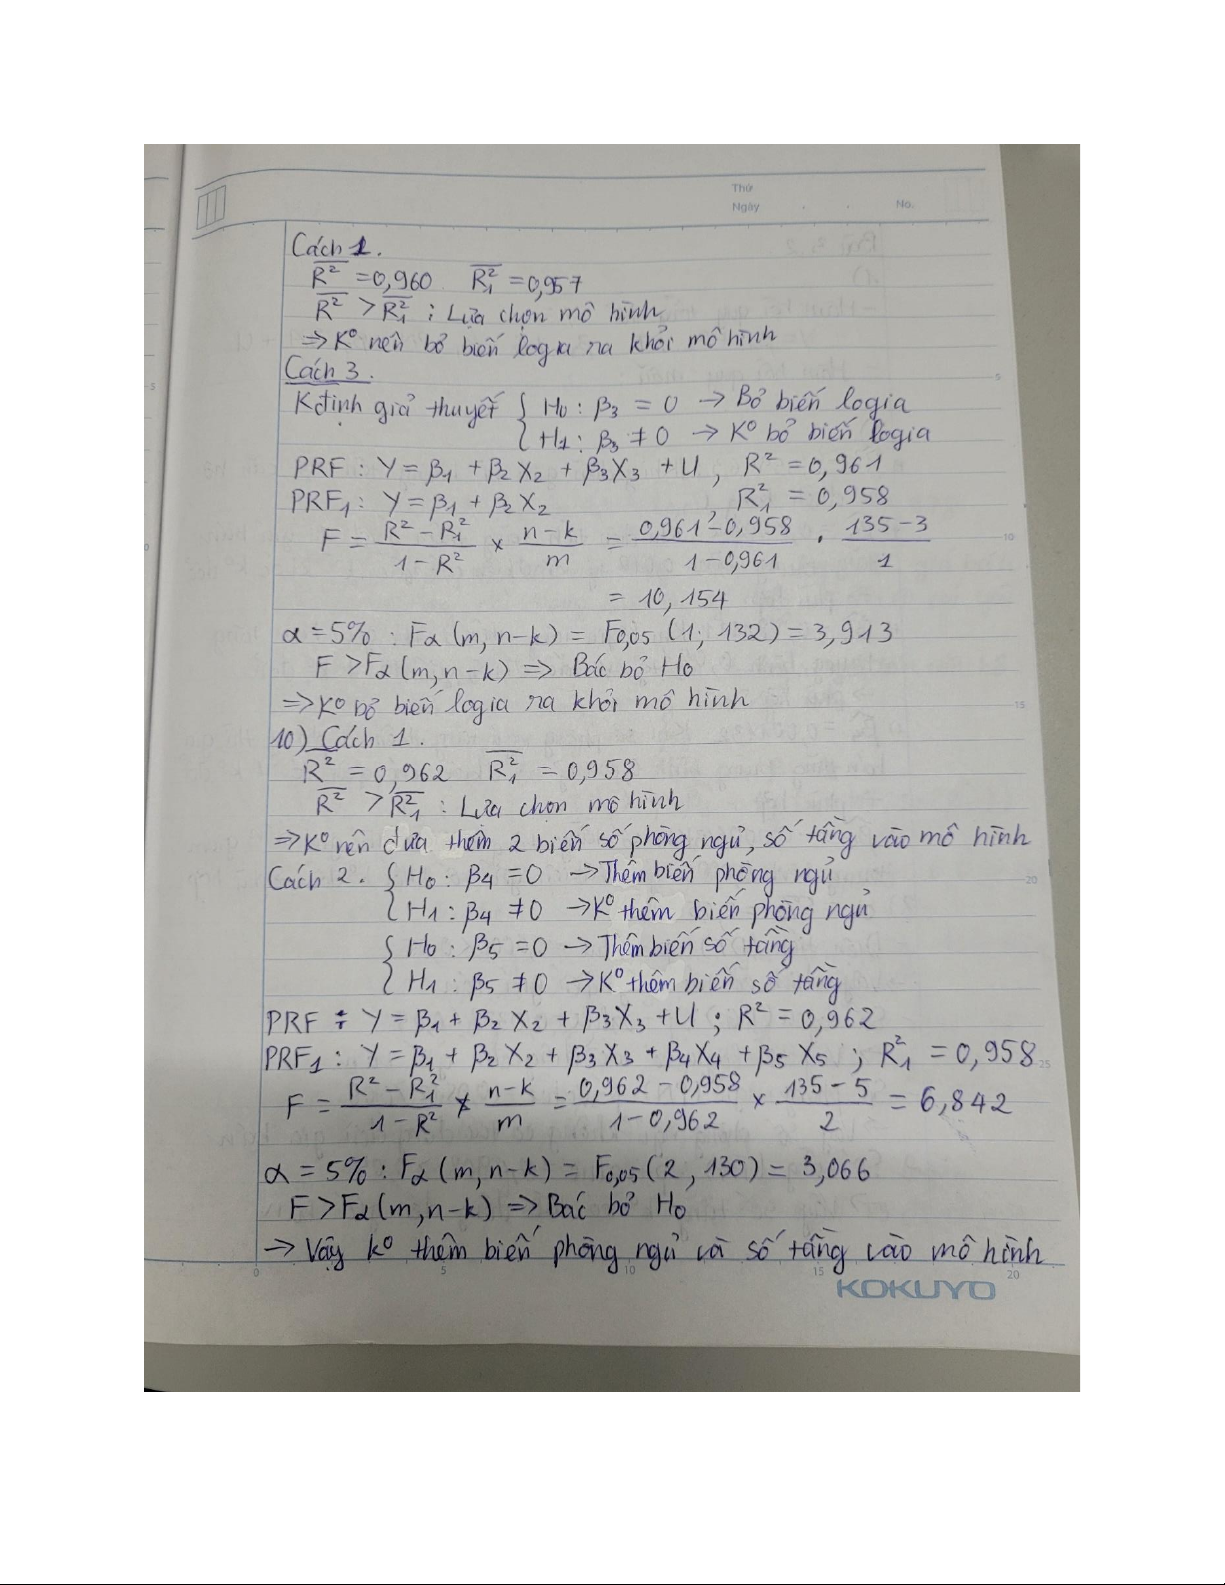 Thứ
Ngày . . No.
Cách 1.
R̅² = 0,960 R̅₁² = 0,957
R̅² > R̅₁² : Lựa chọn mô hình
=> K⁰ nên bỏ biến logia ra khỏi mô hình
Cách 3.
Kđịnh giả thuyết { H₀ : β₃ = 0 → Bỏ biến logia
H₁ : β₃ ≠ 0 → K⁰ bỏ biến logia
PRF : Y = β₁ + β₂X₂ + β₃X₃ + U , R² = 0,961
PRF₁ : Y = β₁ + β₂X₂ R₁² = 0,958
F = (R² - R₁²)/(1 - R²) × (n-k)/m = (0,961 - 0,958)/(1 - 0,961) . (135 - 3)/1
= 10,154
α = 5% : Fα (m, n-k) = F0,05 (1; 132) = 3,913
F > Fα (m, n-k) => Bác bỏ H₀
=> K⁰ bỏ biến logia ra khỏi mô hình
10) Cách 1.
R̅² = 0,962 R̅₁² = 0,958
R̅² > R̅₁² : Lựa chọn mô hình
=> K⁰ nên đưa thêm 2 biến số phòng ngủ, số tầng vào mô hình
Cách 2. { H₀ : β₄ = 0 → Thêm biến phòng ngủ
H₁ : β₄ ≠ 0 → K⁰ thêm biến phòng ngủ
{ H₀ : β₅ = 0 → Thêm biến số tầng
H₁ : β₅ ≠ 0 → K⁰ thêm biến số tầng
PRF : Y = β₁ + β₂X₂ + β₃X₃ + U ; R² = 0,962
PRF₁ : Y = β₁ + β₂X₂ + β₃X₃ + β₄X₄ + β₅X₅ ; R₁² = 0,958
F = (R² - R₁²)/(1 - R²) × (n-k)/m = (0,962 - 0,958)/(1 - 0,962) × (135 - 5)/2 = 6,842
α = 5% : Fα (m, n-k) = F0,05 (2, 130) = 3,066
F > Fα (m, n-k) => Bác bỏ H₀
→ Vậy k⁰ thêm biến phòng ngủ và số tầng vào mô hình
0 5 10 15 20
KOKUYO